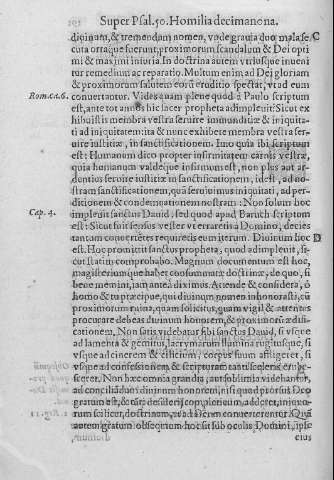 Super Psal.50. Homilia decimanona.
diuinum, & tremendam nomen, vnde grauia duo mala se-
cuta ortaque fuerunt, proximorum scandalum & Dei opti
mi & maximi iniuria. In doctrina autem vtriusque inueni
tur remedium ac reparatio. Multum enim ad Dei gloriam
& proximorum salutem eorū eruditio spectat, vt ad eum
Rom.ca.6.
conuertantur. Vides quam plene quod à Paulo scriptum
est, ante tot annos hic sacer propheta adimpleuit: Sicut ex
hibuistis membra vestra seruire immunditiæ & iniquita-
ti ad iniquitatem: ita & nunc exhibete membra vestra ser-
uire iustitiæ, in sanctificationem. Imo quia ibi scriptum
est: Humanum dico propter infirmitatem carnis vestræ,
quia humanum valdeque infirmum est, non plus aut ar-
dentius seruire iustitiæ in sanctificationem, idest, ad no-
stram sanctificationem, quā seruiuimus iniquitati, ad per-
ditionem & condemnationem nostram: Non solum hoc
Cap. 4.
impleuit sanctus Dauid, sed quod apud Baruch scriptum
est: Sicut fuit sensus vester vt erraretis à Domino, decies
tantum conuertentes requiretis eum iterum. Diuinum hoc
est. Hoc promittit sanctus propheta, quod adimpleuit, si-
cut statim comprobabo. Magnum documentum est hoc,
magisteriumque habet consummatæ doctrinæ, de quo, si
bene memini, iam antea diximus. Attende & considera, ô
homo & tu præcipue, qui diuinum nomen inhonorasti, cū
proximorum ruina, quam solicitus, quam vigil & attentus
procurare debeas diuinum honorem, & proximorū ædifi-
cationem. Non satis videbatur sibi sanctus Dauid, si vsque
ad lamenta & gemitus, lacrymarum flumina rugitusque, si
vsque ad cinerem & cilicium, corpus suum affligeret, si
vsque ad confessionem & scripturam tanti sceleris erube-
sceret. Non hæc omnia grandia, aut sublimia videbantur,
ad conciliandum diuinum honorem, nisi quod prorsus Deo
gratum est, & tām desiderij completiuum, adderet, iniquo-
rum scilicet, doctrinam, vt ad Deum conuerterentur. Quā
autem gratum obsequium hoc sit sub oculis Domini, ipse
eius